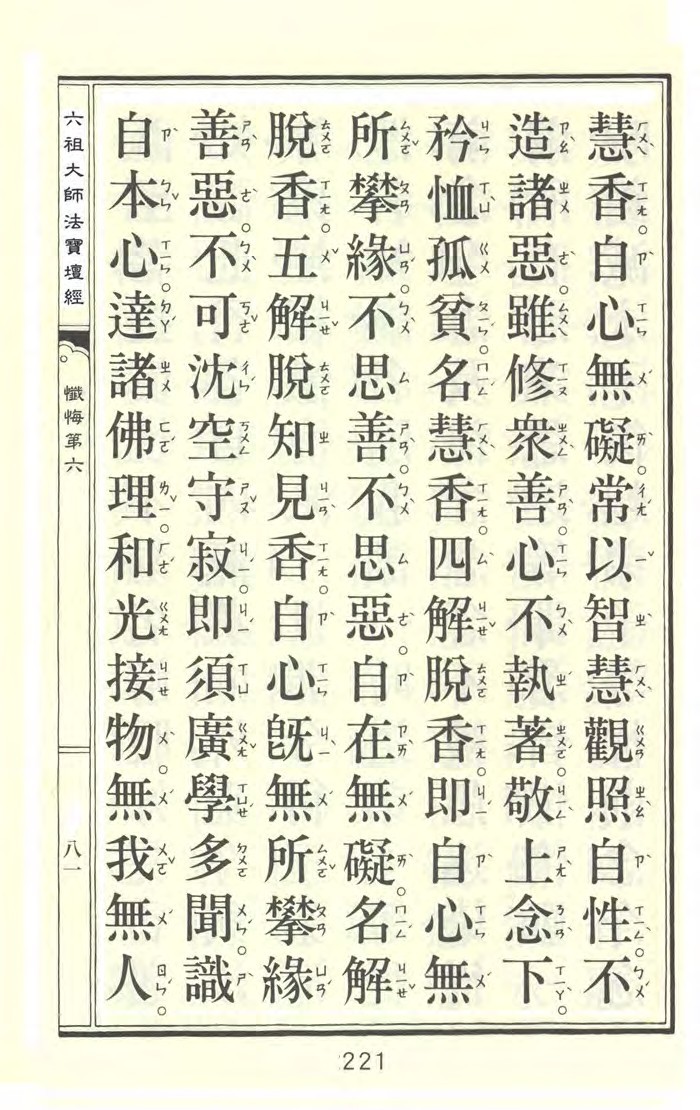 慧香自心無礙常以智慧觀照自性不
造諸惡雖修衆善心不執著敬上念下
矜恤孤貧名慧香四解脫香即自心無
所攀緣不思善不思惡自在無礙名解
脫香五解脫知見香自心旣無所攀緣
善惡不可沈空守寂即須廣學多聞識
自本心達諸佛理和光接物無我無人
六祖大師法寶壇經
懺悔第六
八一
221